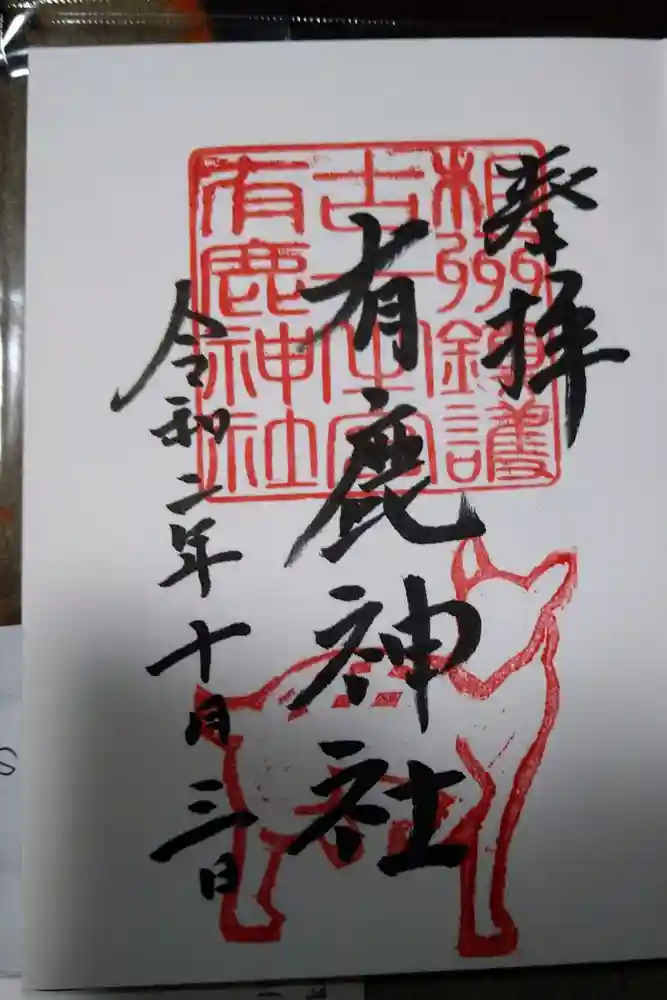 奉拝
相州鎮護
古一之宮
有鹿神社
有鹿神社
令和二年十月三日